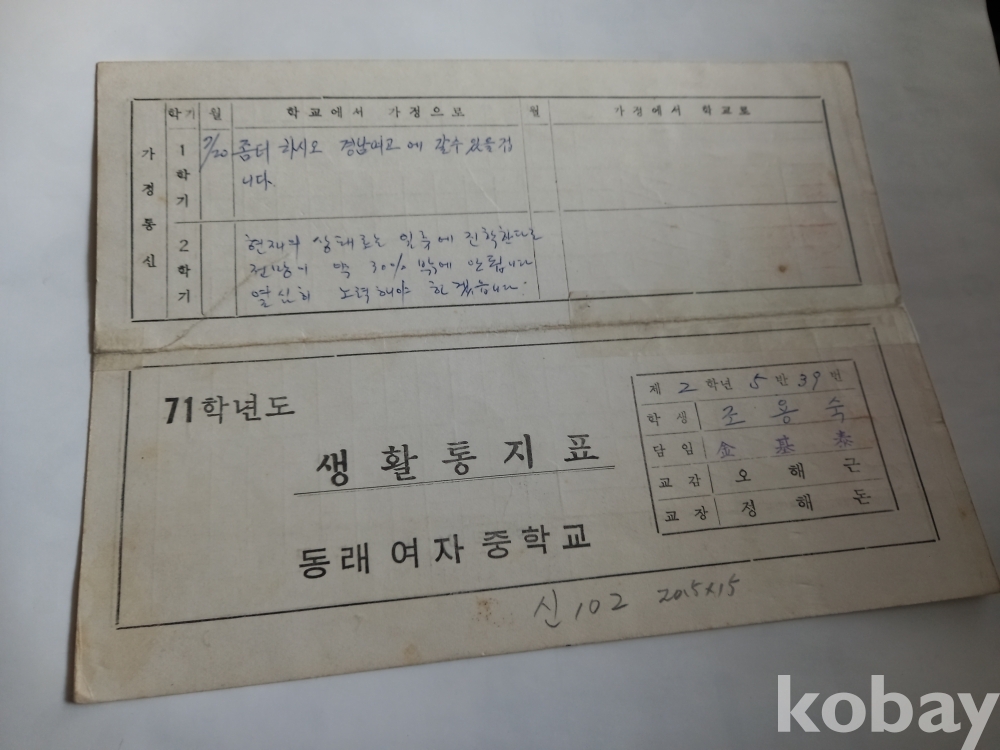 학기 월 학교에서 가정으로 월 가정에서 학교로
가정통신
1학기 7/20 좀더 하시오 경남여고에 갈수 있을겁
니다.
2학기 현재의 상태로는 일후에 진학한다로
전망이 약 30% 밖에 안됩니다
열심히 노력해야 하겠습니다.
71학년도
생활통지표
동래여자중학교
제 2 학년 5 반 39 번
학생 조용숙
담임 金基泰
교감 오해근
교장 정해돈
신 102 20.5x15
kobay